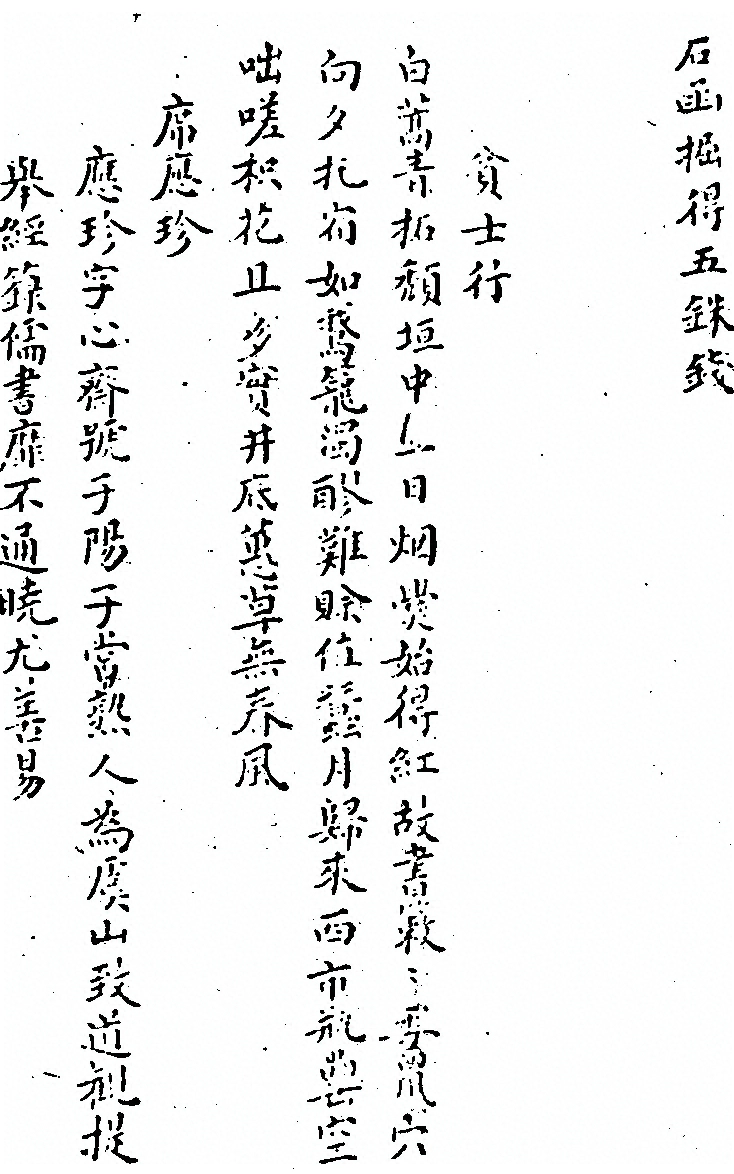 石函掘得五銖錢
貧士行
白蒿青拓頹垣中亭日烟爂始得紅故書簌〻委鼠穴
向夕托宿如鷄籠濁醪難賒值蠶月歸來西市瓶罌空
咄嗟枳花且多實井底蕙草無春風
席應珍
應珍字心齋號子陽子常熟人為虞山致道觀提
舉經籙儒書靡不通曉尤善易